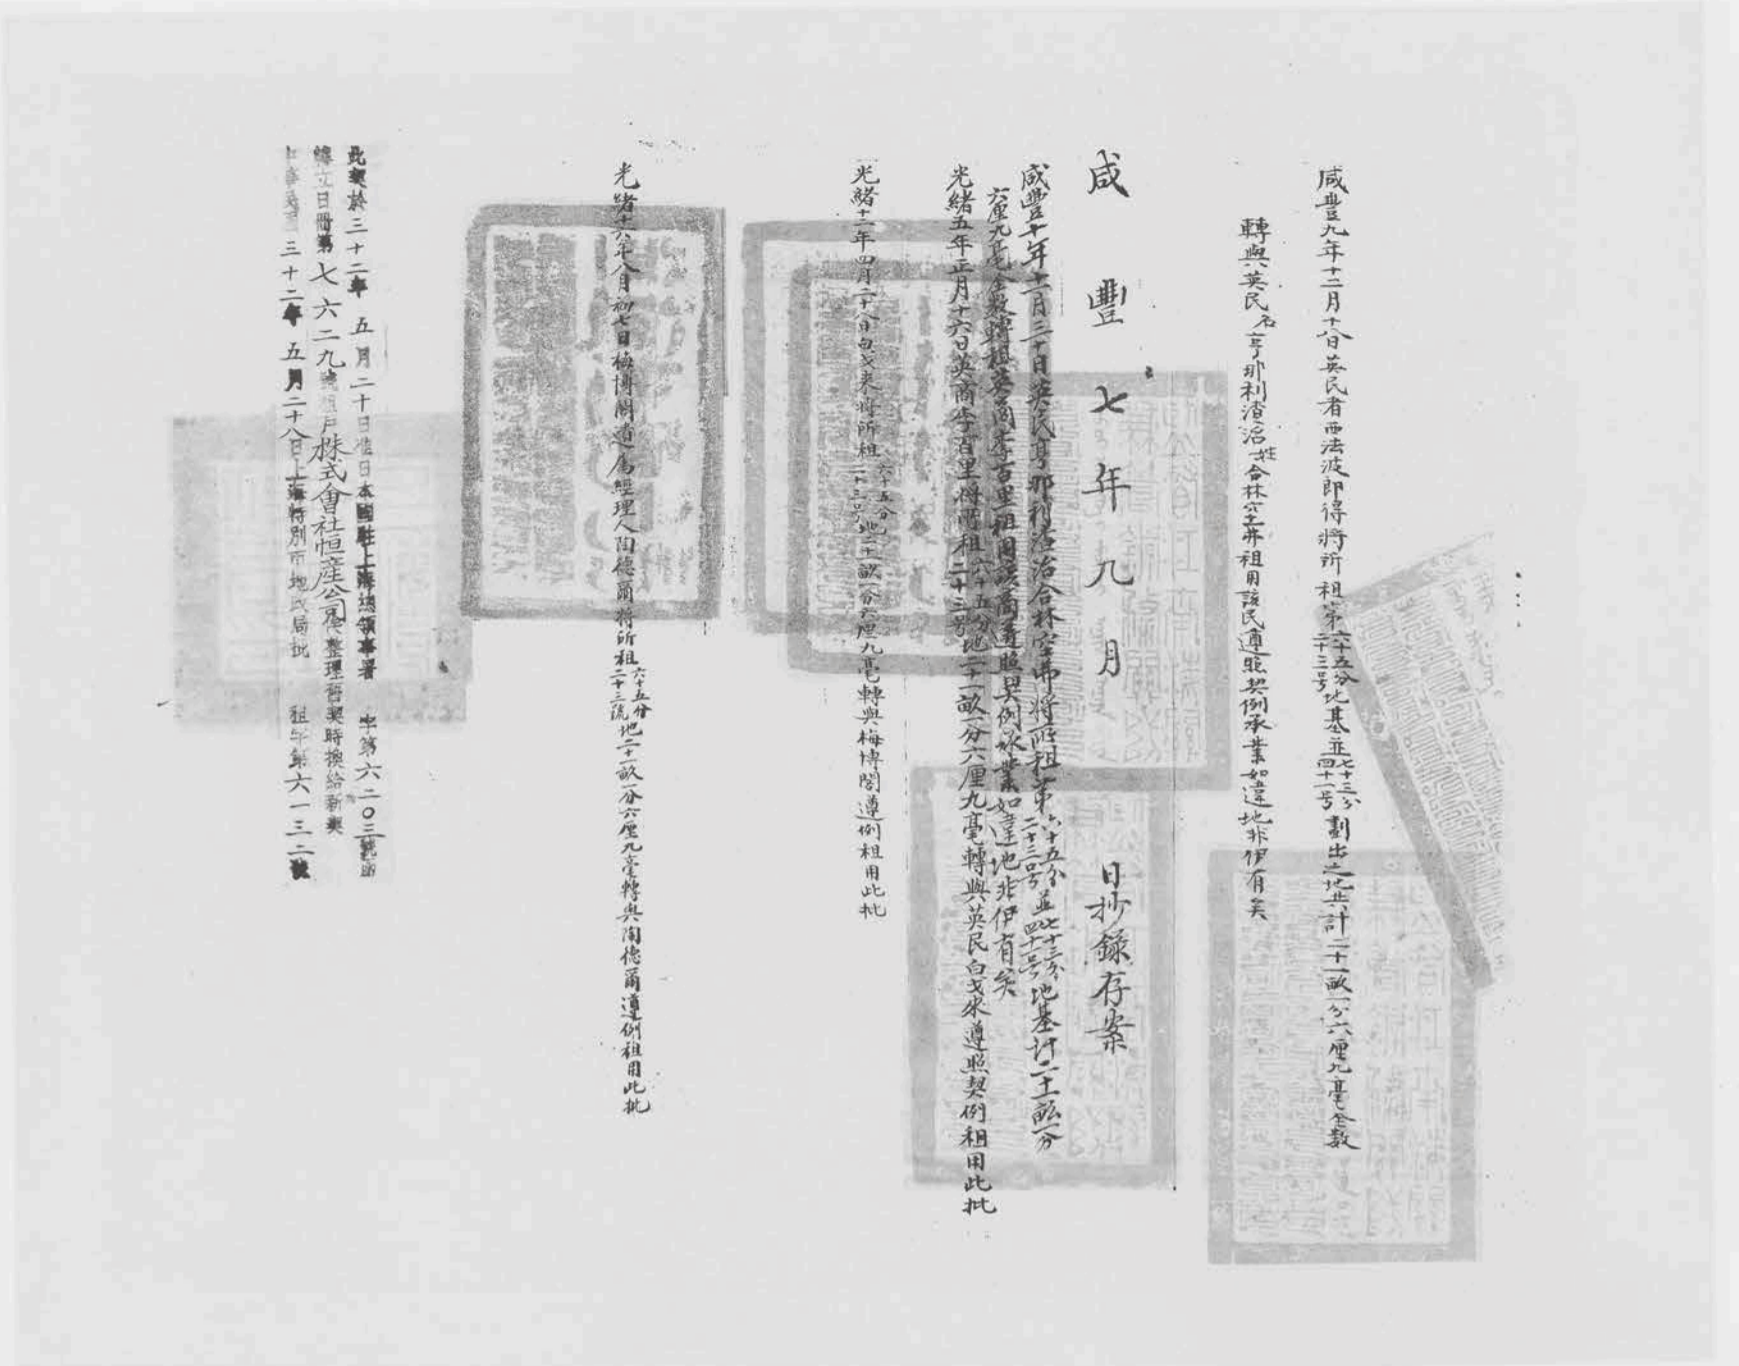 咸豐九年十二月十八日英民者西法波即得將所租第六十五分二十三号地基並七十三分四十一号劃出之地共計二十一畝一分六厘九毫全数
轉與英民名亨那利渣治姓合林空弗租用該民遵照契例承業如違地非伊有矣
咸豐七年九月 日抄錄存案
咸豐十年十一月三十日英民亨那利渣治合林空弗將所租第六十五分二十三号並七十三分四十一号地基計二十一畝一分
六厘九毫全数轉租英商李百里租用該商遵照契例承業如違地非伊有矣
光緒五年正月十六日英商李百里將所租六十五分二十三号地二十一畝一分六厘九毫轉與英民白戈來遵照契例租用此批
光緒十二年四月二十八日白戈來將所租六十五分二十三号地二十一畝一分六厘九毫轉與梅博閣遵例租用此批
光緒十六年八月初七日梅博閣遣為經理人陶德爾將所租六十五分二十三號地二十一畝一分六厘九毫轉與陶德爾遵例租用此批
此契於三十二年五月二十日准日本國駐上海總領事署 字第六二〇三號函
轉立日冊第七六二九號租戶株式會社恒産公司俟整理舊契時換給新契
三十二年五月二十八日上海特別市地政局批 租字第六一三二號